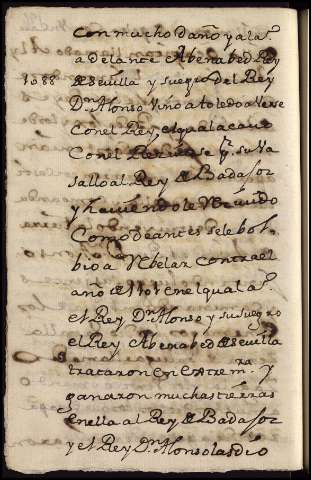 con mucho daño y al aº.
adelante Abenabed Rey
1088 de Sevilla y suegro del Rey
Dn Alonso vino a toledo a verse
con el Rey, el qual
con el
sallo al Rey de Badajoz
y haviendole Vencido
como de antes se le bol
bio a Rebelar contra el
año en el qual aº.
el Rey Dn Alonso y su suegro
el Rey Abenabed de sevilla
trataron en Extremra. y
ganaron muchas tierras
en ella al Rey de Badajoz
y el Rey Dn Alonso las dio